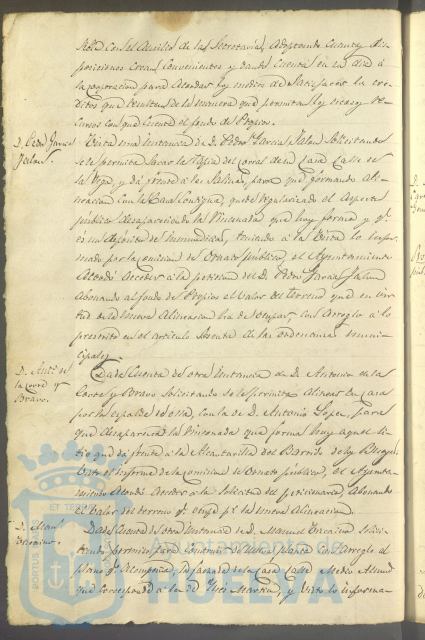 con el Auxilio de la Secretaría, adoptando cuantas dis-
posiciones crean convenientes y dando cuenta en su dia á
la corporacion para acordar los medios de satisfacer los cre-
ditos que resulten de la manera que permitan los escasos re-
cursos con que cuenta el fondo de Propios.
D. Pedro Garcia
Jalon
Vista una instancia de D. Pedro Garcia Jalon solicitando
se le permita sacar la tapia del corral de su casa calle de
la Vega, y dá frente á las Salinas, para que formando ali-
neacion con la casa contigua, quede regularizado el aspecto
público desapareciendo la rinconada que hoy forma y qe.
es un deposito de inmundicias, teniendo á la vista lo infor-
mado por la comision de Ornato público, el Ayuntamiento
acordó acceder á la peticion del D. Pedro Garcia Jalon
abonando al fondo de Propios el valor del terreno que en vir-
tud de la nueva alineacion ha de ocupar, con arreglo á lo
prescrito en el articulo sesenta de las ordenanzas muni-
cipales.
D. Antº de
la Corte y
Bravo.
Dada cuenta de otra instancia de D. Antonio de la
Corte y Bravo solicitando se le permita alinear la casa
por la espalda de esta, con la de D. Antonio Lopez, para
que desaparezca la rinconada que forma hoy aquel si-
tio que dá frente á la Alcantarilla del Barrio de
Visto el informe de la comision de Ornato público, el Ayunta-
miento acordó acceder á la solicitud del peticionario, abonando
el valor del terreno qe. ocupe pr. la nueva alineacion.
D. Manl.
Dada cuenta de otra instancia de D. Manuel solici-
tando permiso para construir de nueva planta con arreglo al
plano qe. acompaña, la fachada de la casa calle Medio Almud
que corresponde á la de Ines Martin, y visto lo informa-
ET TERRAE
PORTUS
Ayuntamiento de
HUELVA